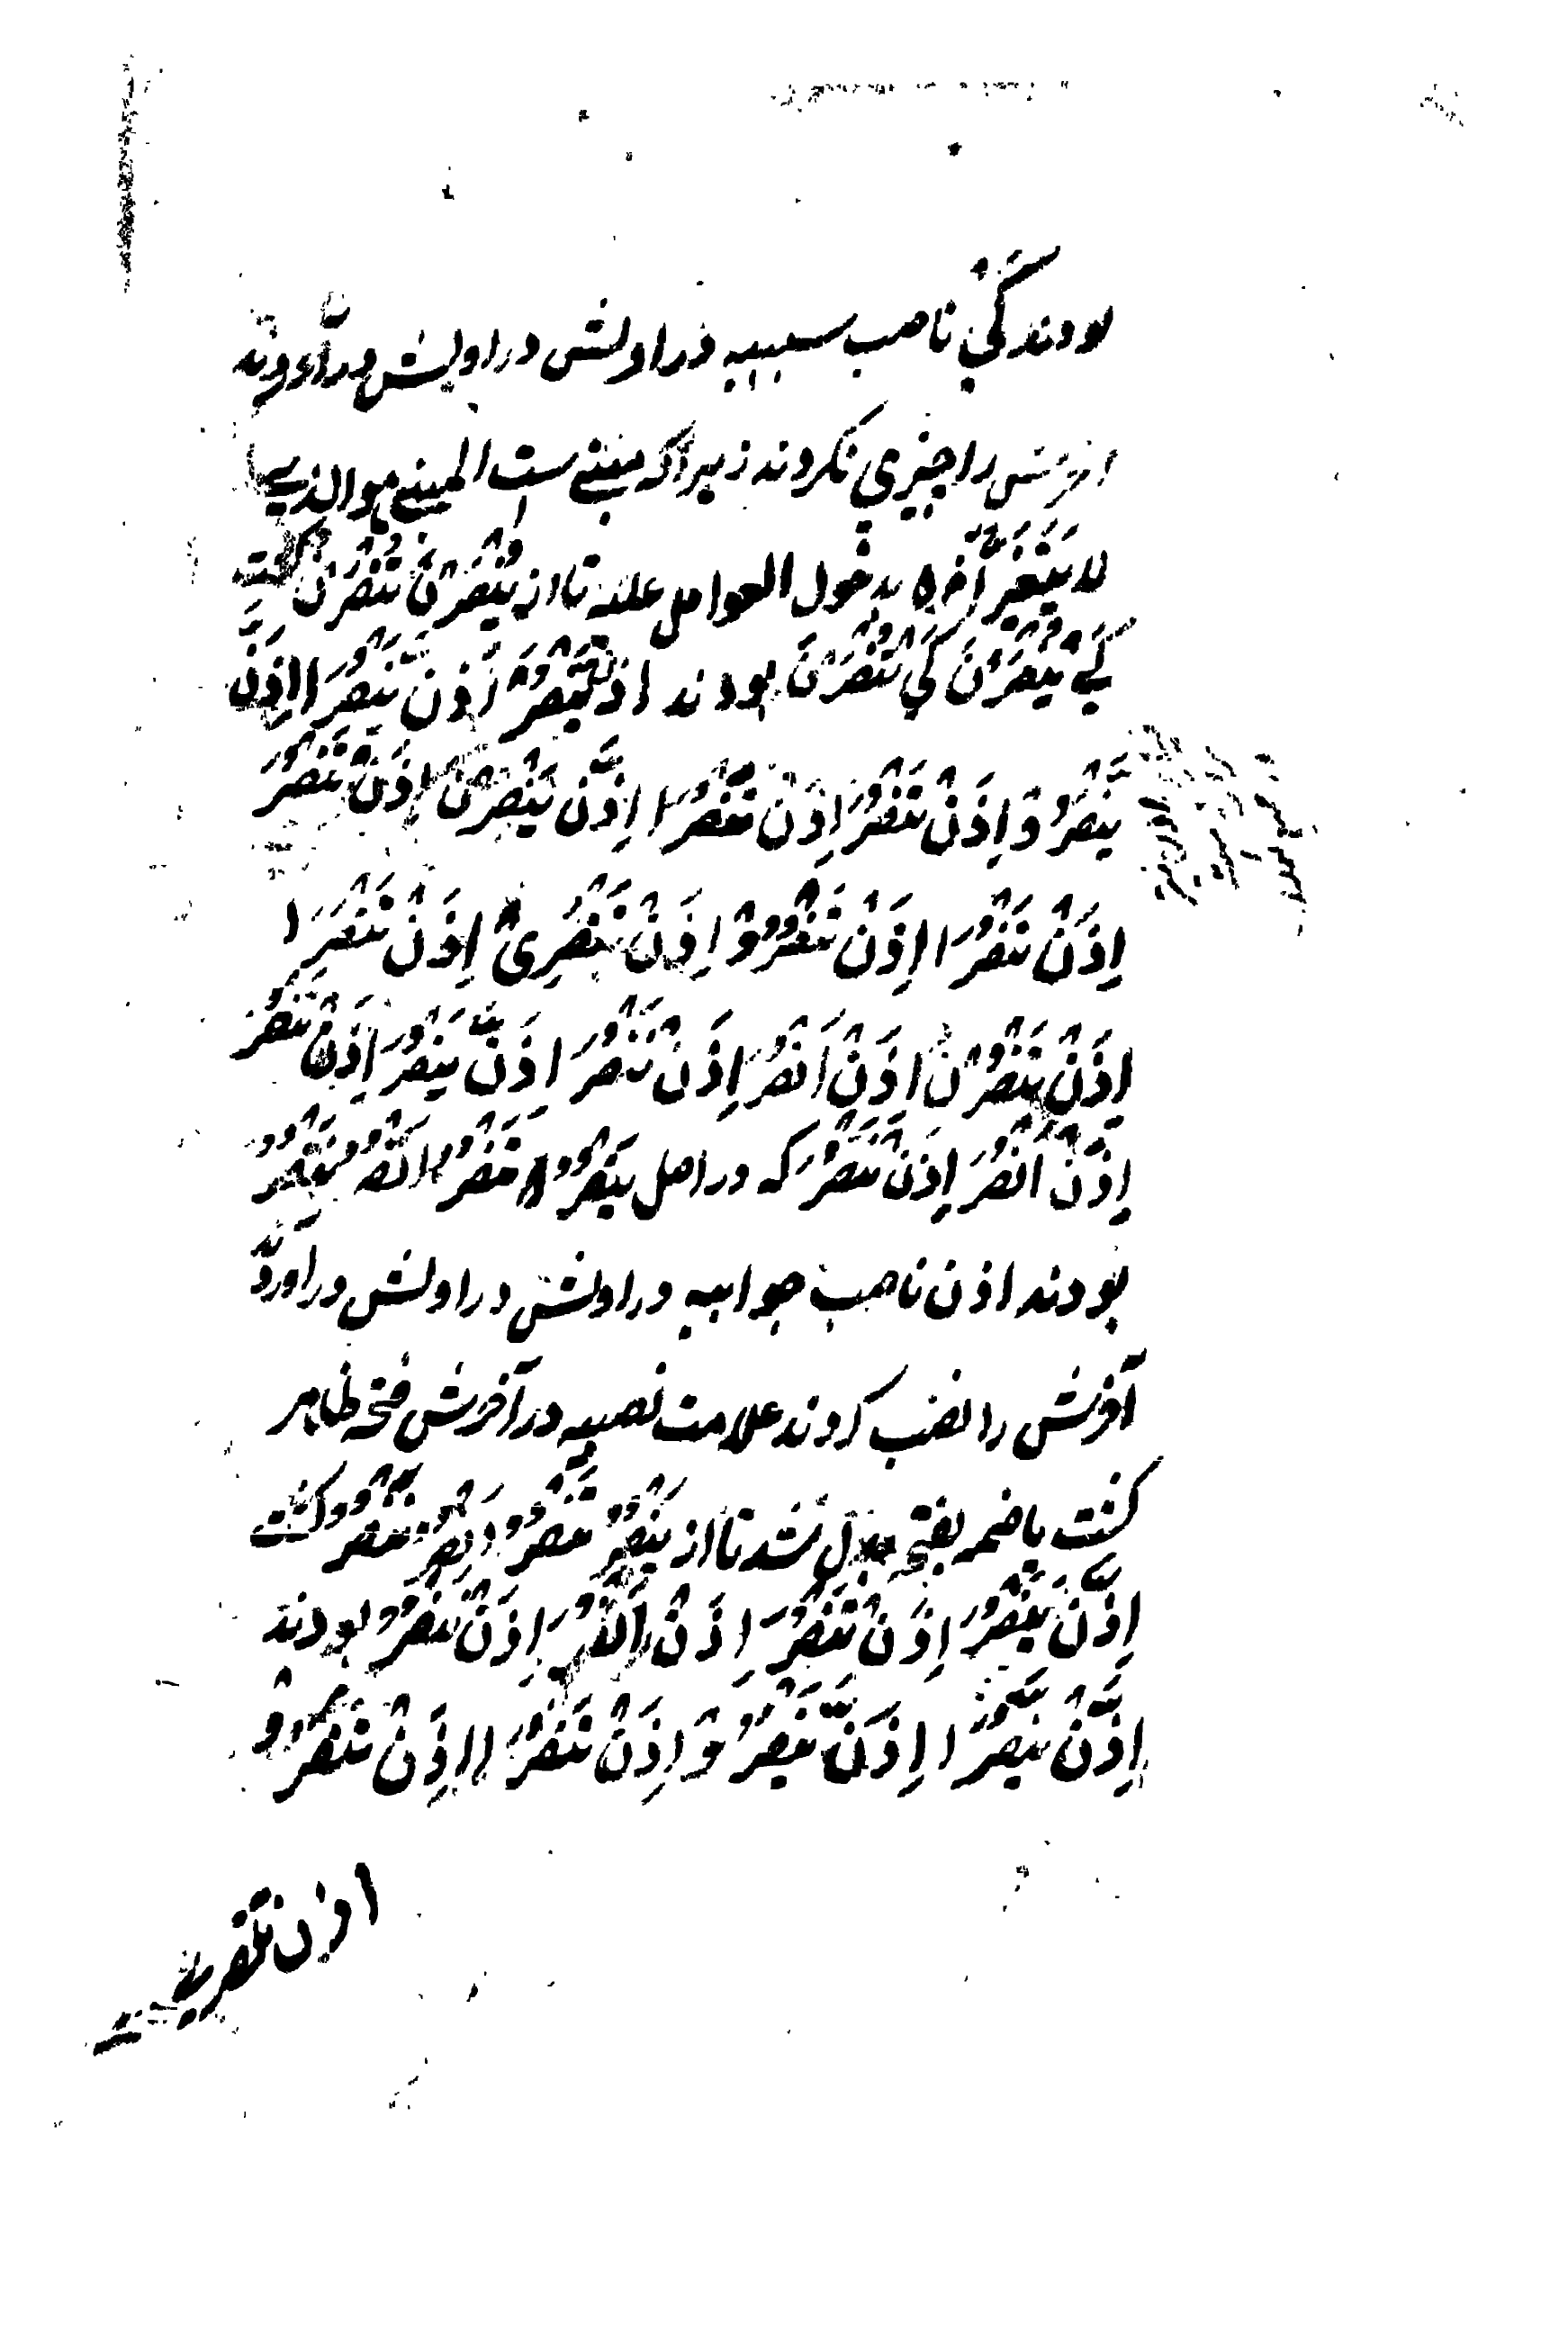 بودند كَيْ ناصب سببیه در اولش در اولش در آوردند
اخرش را چیزي نکردند زیراکه مبني ست المبنے هو الذي
لا يَتَغَيَّرُ آخره بدخول العوامل علیه تا از يُنْصَرْنَ تُنْصَرْنَ گشت
كَيْ يُنْصَرْنَ كَيْ تُنْصَرْنَ بودند اِذَنْ يَنْصُرَ اِذَنْ يَنْصُرَا اِذَنْ
يَنْصُرُوْا اِذَنْ تَنْصُرَ اِذَنْ تَنْصُرَا اِذَنْ يَنْصُرْنَ اِذَنْ تَنْصُرَ
اِذَنْ تَنْصُرَا اِذَنْ تَنْصُرُوْا اِذَنْ تَنْصُرِيْ اِذَنْ تَنْصُرَا
اِذَنْ تَنْصُرْنَ اِذَنْ اَنْصُرَ اِذَنْ نَنْصُرَ اِذَنْ يَنْصُرَ اِذَنْ تَنْصُرَ
اِذَنْ اَنْصُرَ اِذَنْ نَنْصُرَ که در اصل يَنْصُرُ تَنْصُرُ اَنْصُرُ نَنْصُرُ
بودند اذن ناصب جوابیه در اولش در اولش در آوردند
آخرش را نصب کردند علامت نصبیه در آخرش فتحه ظاهر
گشت یا ضمه بفتحه بدل شد تا از يَنْصُرُ تَنْصُرُ اَنْصُرُ نَنْصُرُ گشت
اِذَنْ يَنْصُرَ اِذَنْ تَنْصُرَ اِذَنْ اَنْصُرَ اِذَنْ نَنْصُرَ بودند
اِذَنْ يَنْصُرَا اِذَنْ يَنْصُرُوْا اِذَنْ تَنْصُرَا اِذَنْ تَنْصُرُوْا
اذن تنصري